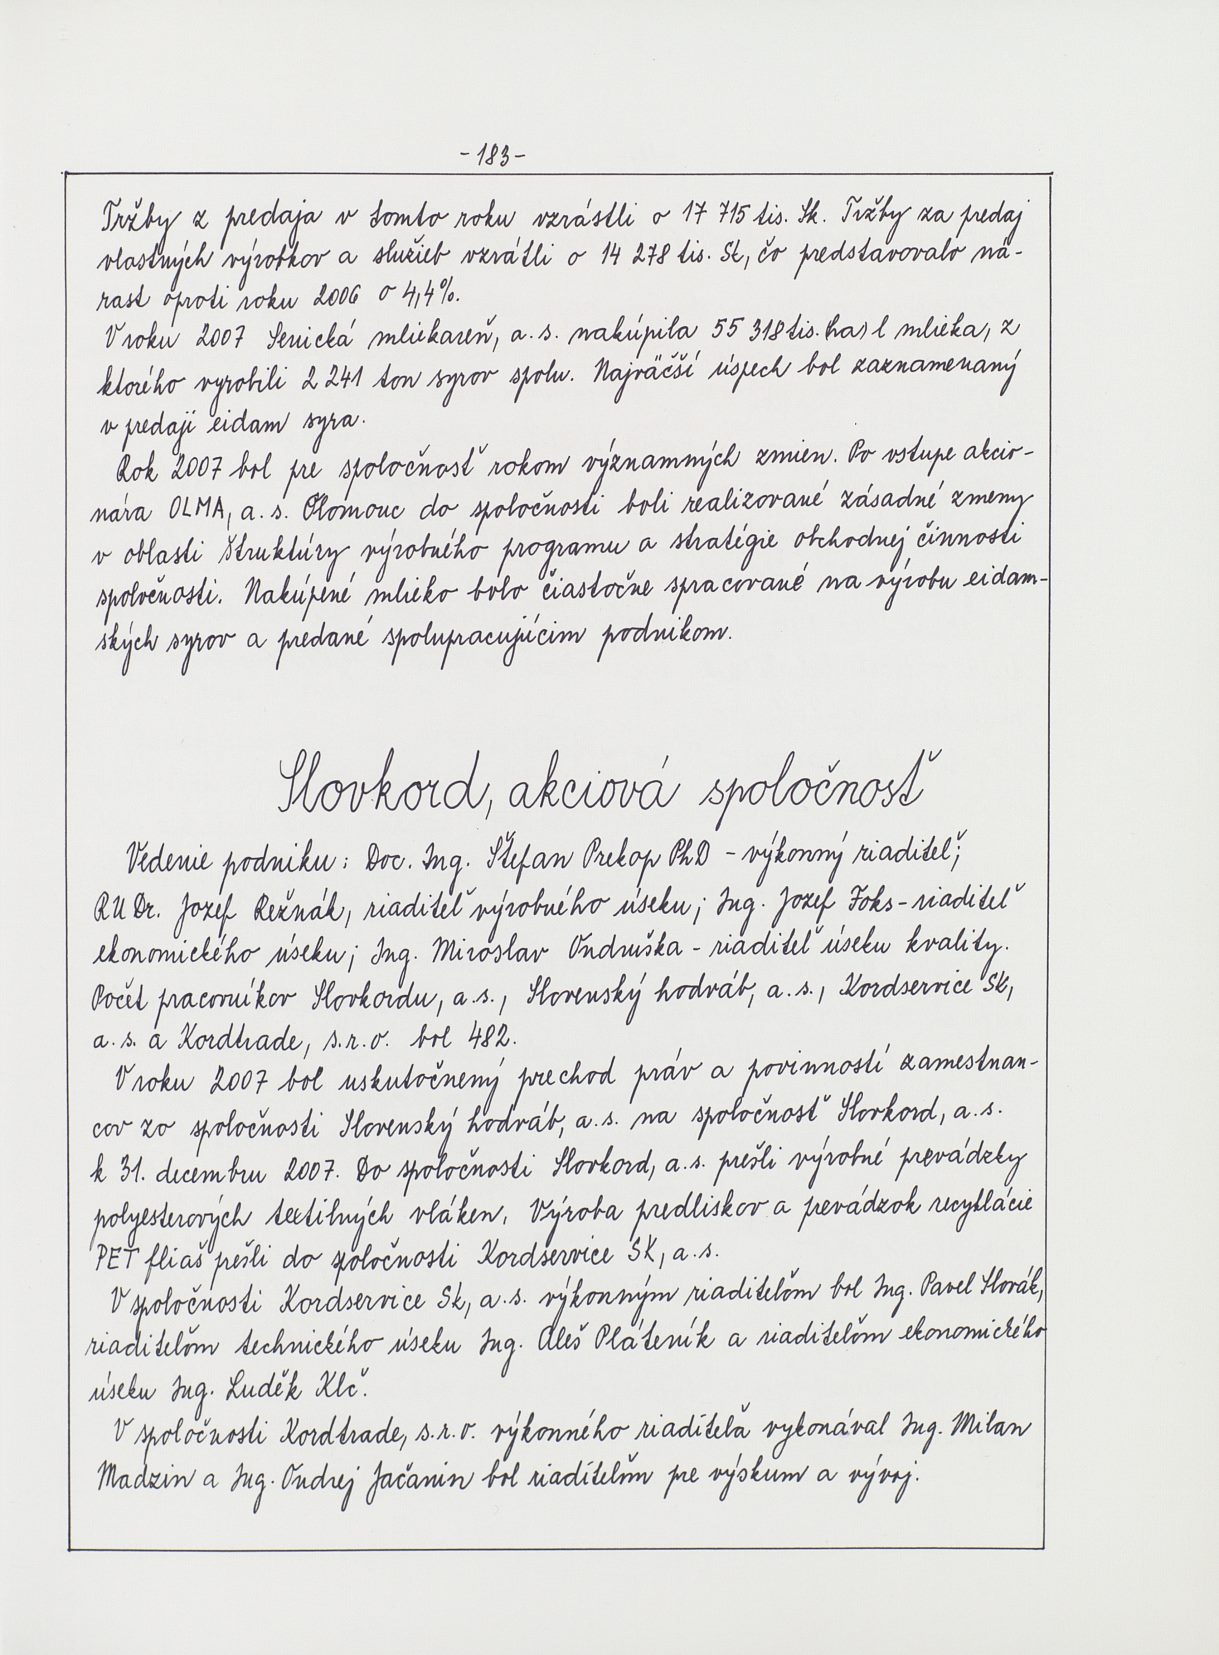 -183-
Tržby z predaja v tomto roku vzrástli o 17 715 tis. Sk. Tržby za predaj
vlastných výrobkov a služieb vzrátli o 14 278 tis. Sk, čo predstavovalo ná-
rast oproti roku 2006 o 4,4%.
V roku 2007 Senická mliekareň, a. s. nakúpila 55 318 tis. (ha) l mlieka, z
ktorého vyrobili 2 241 ton syrov spolu. Najväčší úspech bol zaznamenaný
v predaji eidam syra.
Rok 2007 bol pre spoločnosť rokom významných zmien. Po vstupe akcio-
nára OLMA, a. s. Olomouc do spoločnosti boli realizované zásadné zmeny
v oblasti štruktúry výrobného programu a stratégie obchodnej činnosti
spoločnosti. Nakúpené mlieko bolo čiastočne spracované na výrobu eidam-
ských syrov a predané spolupracujúcim podnikom.
Slovkord, akciová spoločnosť
Vedenie podniku: Doc. Ing. Štefan Prekop PhD - výkonný riaditeľ;
RUDr. Jozef Režnák, riaditeľ výrobného úseku; Ing. Jozef Foks - riaditeľ
ekonomického úseku; Ing. Miroslav Ondruška - riaditeľ úseku kvality.
Počet pracovníkov Slovkordu, a.s., Slovenský hodváb, a.s., Kordservice SK,
a.s. a Kordtrade, s.r.o. bol 482.
V roku 2007 bol uskutočnený prechod práv a povinností zamestnan-
cov zo spoločnosti Slovenský hodváb, a.s. na spoločnosť Slovkord, a.s.
k 31. decembru 2007. Do spoločnosti Slovkord, a.s. prešli výrobné prevádzky
polyesterových textilných vláken. Výroba predliskov a prevádzok recyklácie
PET fliaš prešli do spoločnosti Kordservice SK, a.s.
V spoločnosti Kordservice Sk, a.s. výkonným riaditeľom bol Ing. Pavel Slovák,
riaditeľom technického úseku Ing. Aleš Pláteník a riaditeľom ekonomického
úseku Ing. Luděk Klč.
V spoločnosti Kordtrade, s.r.o. výkonného riaditeľa vykonával Ing. Milan
Madzin a Ing. Ondrej Jačanin bol riaditeľom pre výskum a vývoj.